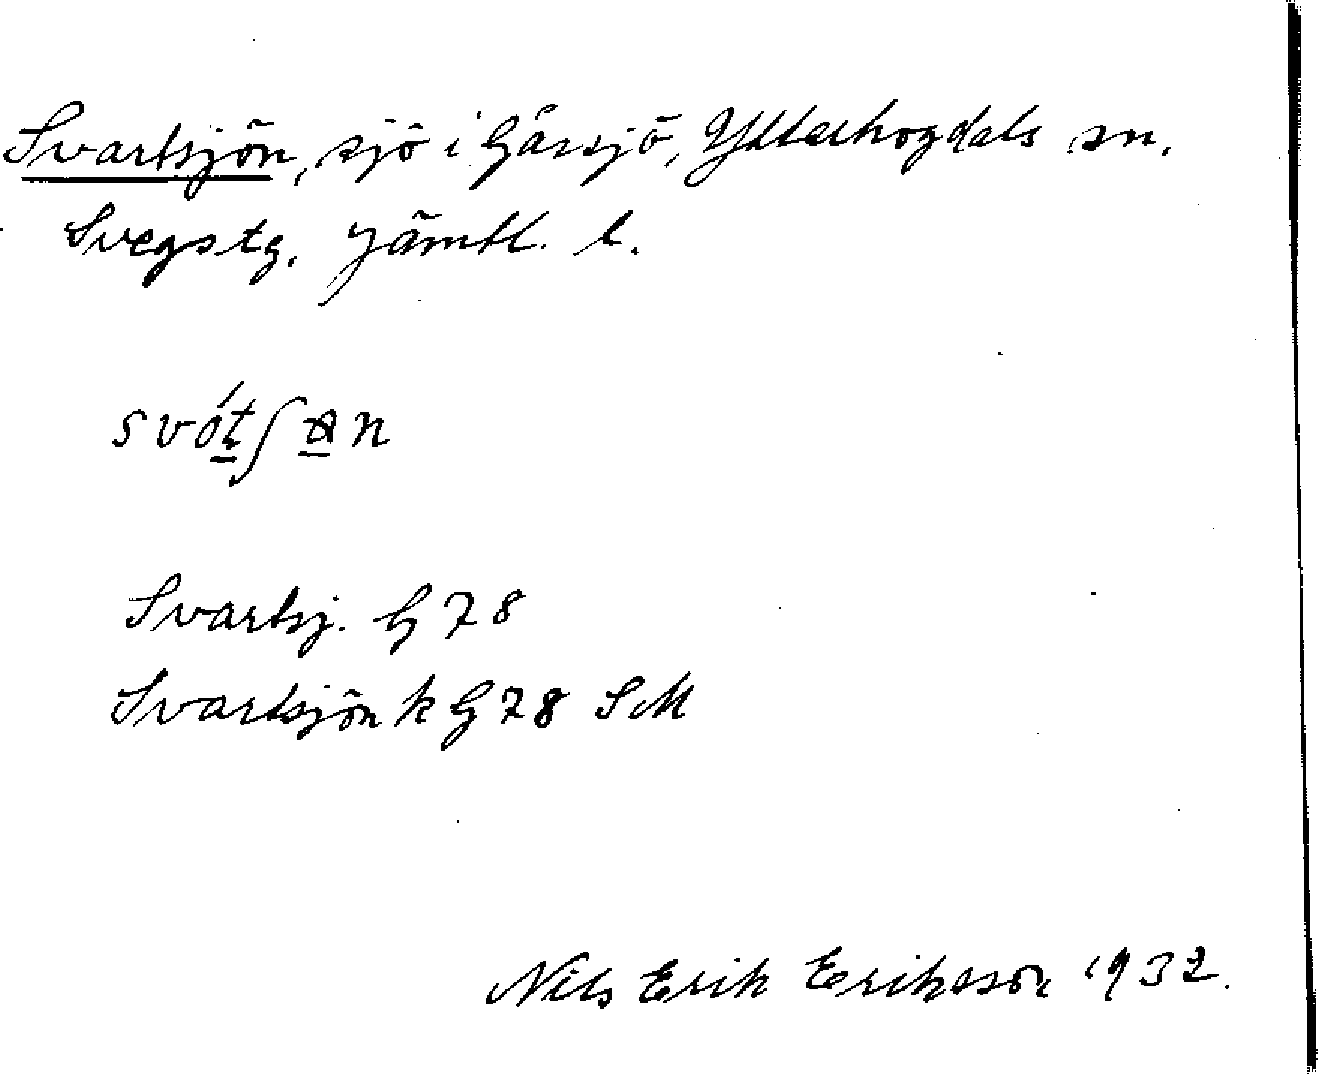 Svartsjön, sjö i Gåssjö, Ytterhogdals sn.
Svegs tg. Jämtl. l.
svótʃ n
Svartsj. G 78
Svartsjön k G 78 SM
Nils Erik Eriksson 1932.